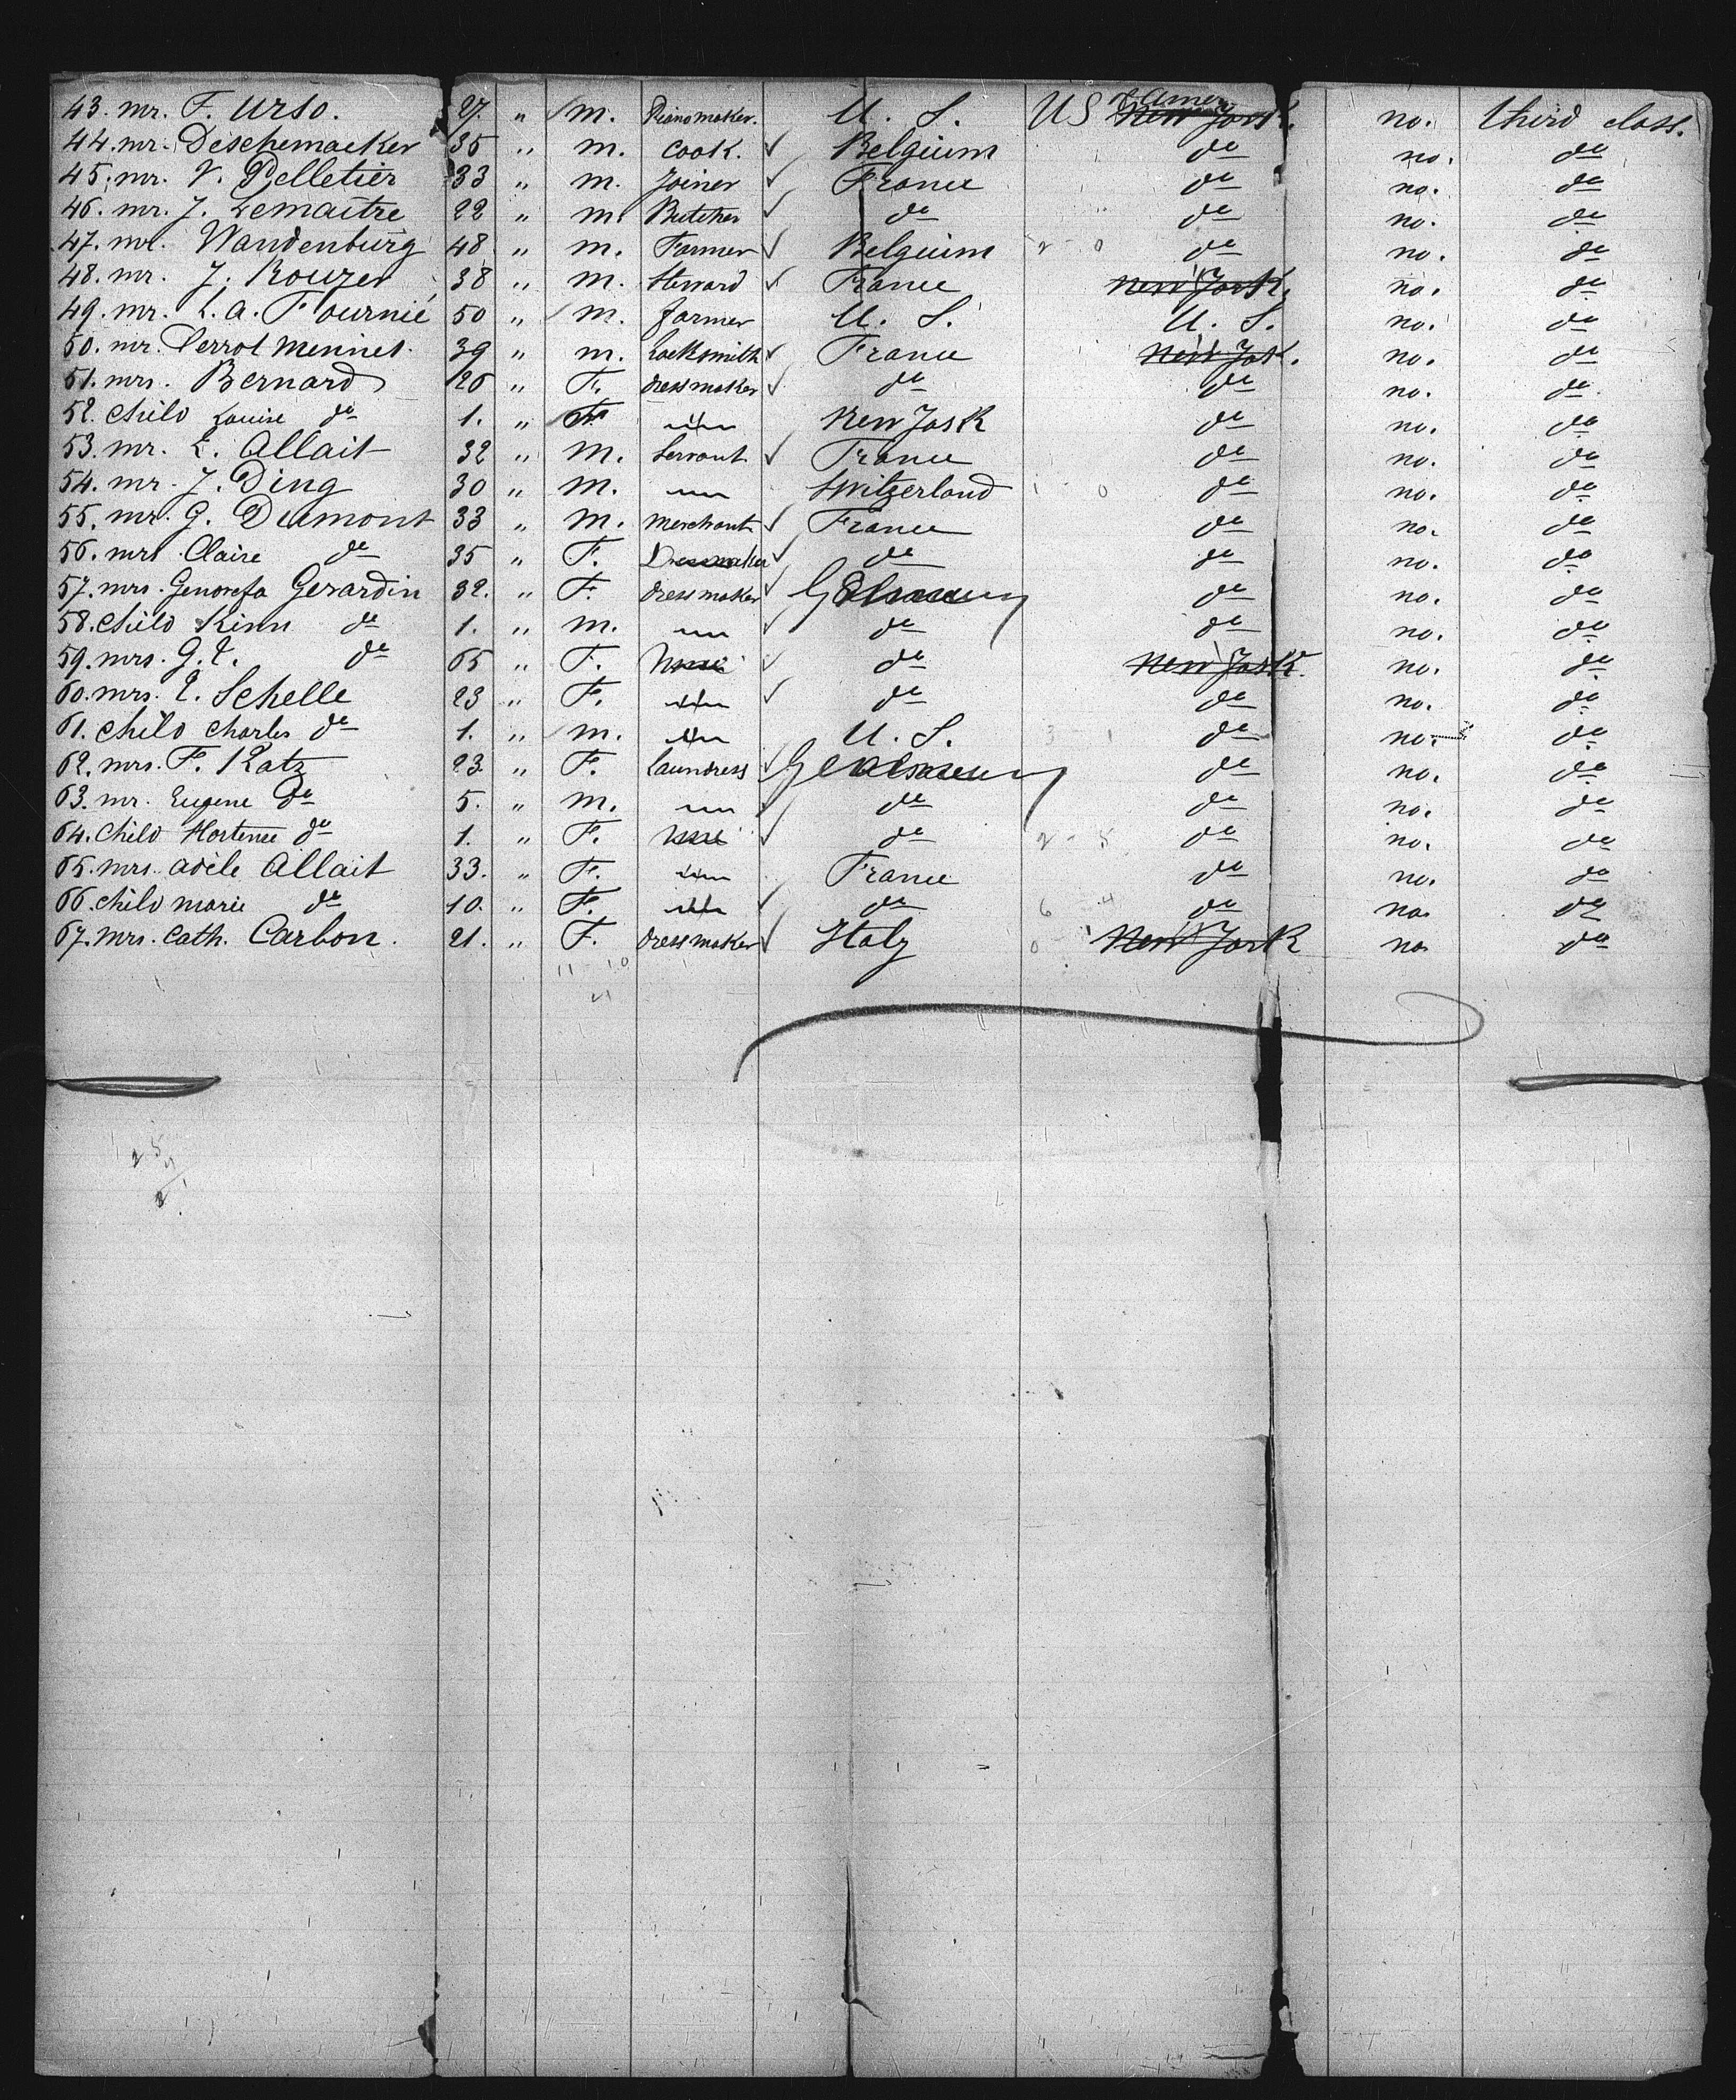 43. mr. F. Urso. 27. " m. Pianomaker. U. S. US of Amer New York. no. third class.
44. mr. Deschemacker 35 " m. Cook. Belgium do no. do
45. mr. V. Pelletier 33 " m. Joiner France do no. do
46. mr. J. Lemaitre 22 " m. Butcher do do no. do
47. mr. Wandenburg 48 " m. Farmer Belgium 2 - 0 do no. do
48. mr. J. Rouzer 38 " m. Steward France New York. no. do
49. mr. L. A. Fournié 50 " m. farmer U. S. U. S. no. do
50. mr. Perrot Mennet. 39 " m. Locksmith France New York. no. do
51. mrs. Bernard 26 " F. dressmaker do do no. do
52. Child Louise do 1. " F. New York do no. do
53. mr. E. Allait 32 " m. Servant France do no. do
54. mr. J. Ding 30 " m. " Switzerland 1 - 0 do no. do
55. mr. G. Dumont 33 " m. merchant France do no. do
56. mrs. Claire do 35 " F. Dressmaker do do no. do
57. mrs. Genorefa Gerardin 32. " F. dressmaker Germany do no. do
58. Child Kinn do 1. " m. " do do no. do
59. mrs. G. E. do 65 " F. do New York. no. do
60. mrs. E. Schelle 23 " F. do do no. do
61. Child Charles do 1. " m. U. S. 3 - 1 do no. do
62. mrs. F. Katz 23 " F. Laundress Germany do no. do
63. mr. Eugene do 5. " m. " do do no. do
64. Child Hortense do 1. " F. do 2 - 5 do no. do
65. mrs. Adèle Allait 33. " F. France do no. do
66. Child Marie do 10. " F. do 6 4 do no. do
67. mrs. Cath. Carbon. 21. " F. dressmaker Italy 0 - 1 New York no do
11 - 10
21
25